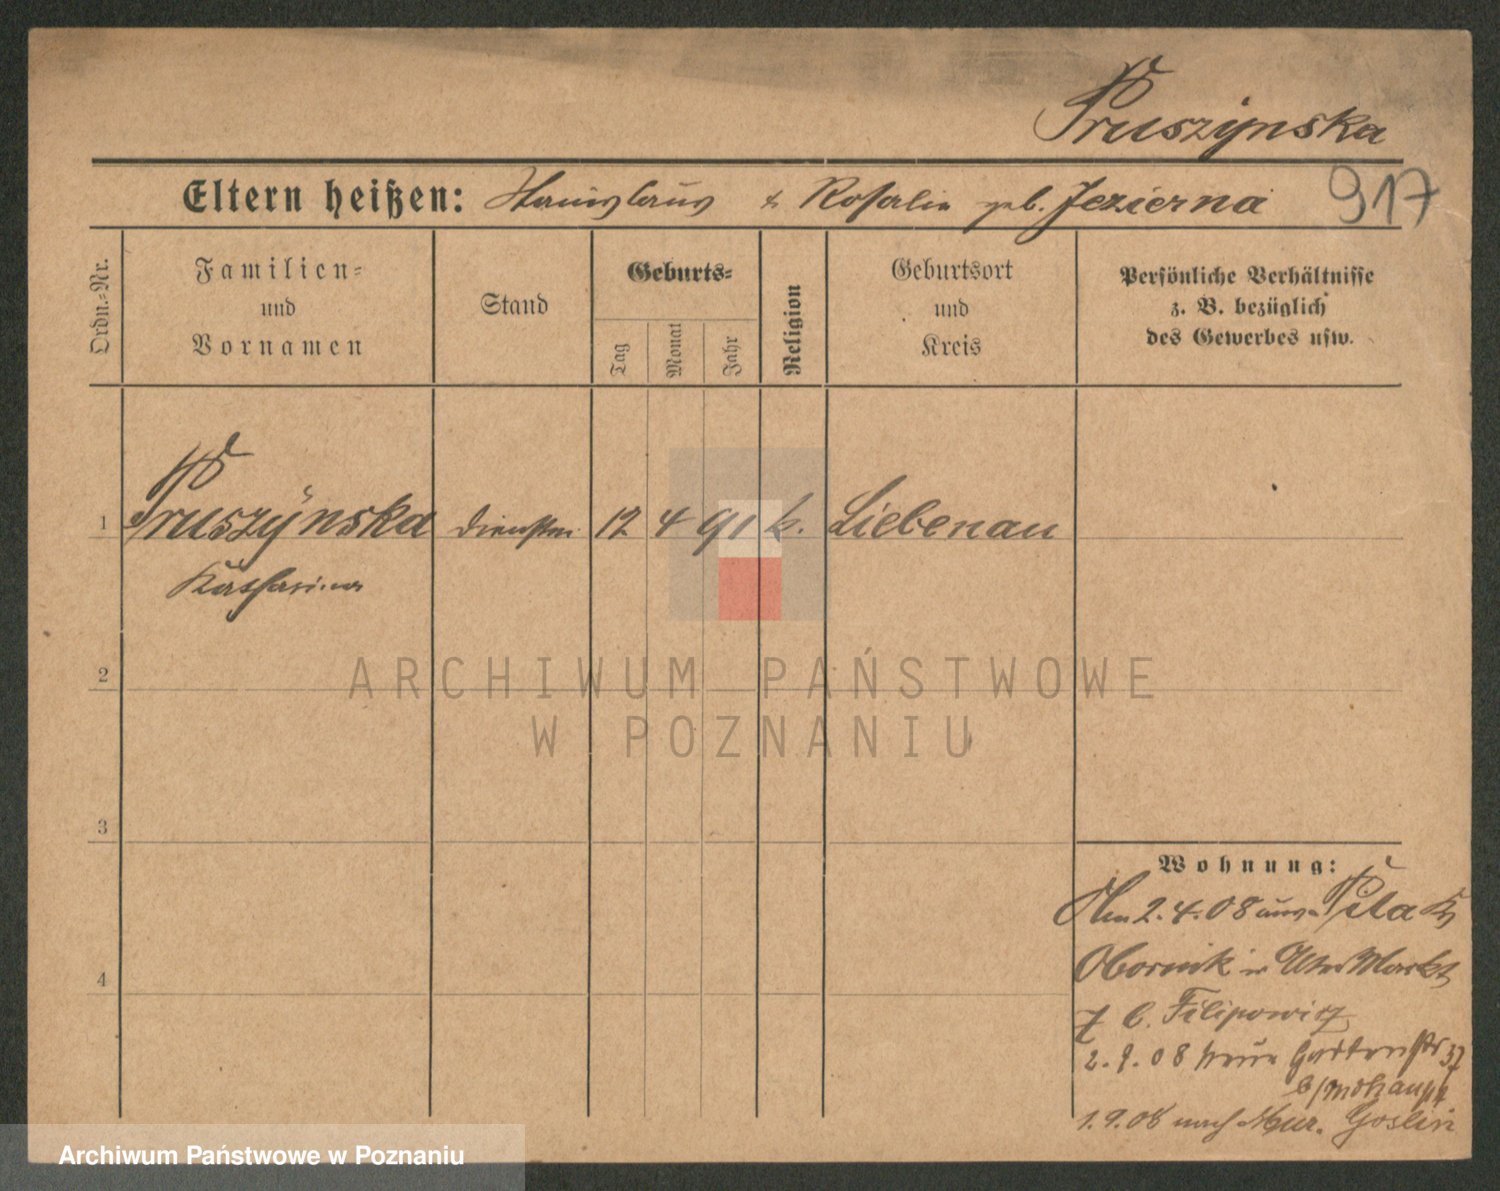 Pruszynska
Eltern heißen: Stanislaus & Rosalie geb. Jezierna 917
Ordn.-Nr.
Familien-
und
Vornamen
Stand
Geburts-
Tag
Monat
Jahr
Religion
Geburtsort
und
Kreis
Persönliche Verhältnisse
z. B. bezüglich
des Gewerbes usw.
1 Pruszÿnska 12 4 91 k. Liebenau
Katharina
2
ARCHIWUM PAŃSTWOWE
W POZNANIU
3
Wohnung:
2.4.08 aus Pila
4
Obornik Alter Markt
7 b. Filipowicz
2.8 Neue Gartenstr 37
1.9.08 nach Mur. Goslin
Archiwum Państwowe w Poznaniu